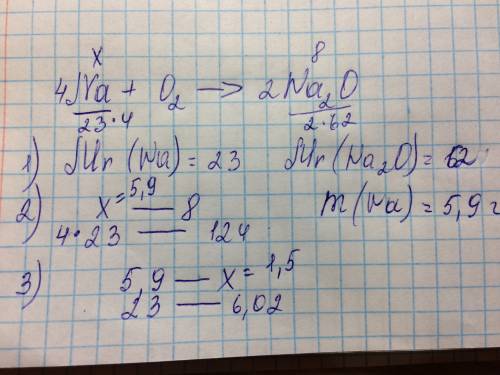 x 8
4Na + O₂ → 2Na₂O
23·4 2·62
1) Mr(Na) = 23 Mr(Na₂O) = 62
2) x = 5,9 — 8 m(Na) = 5,9 г
4·23 — 124
3) 5,9 — x = 1,5
23 — 6,02